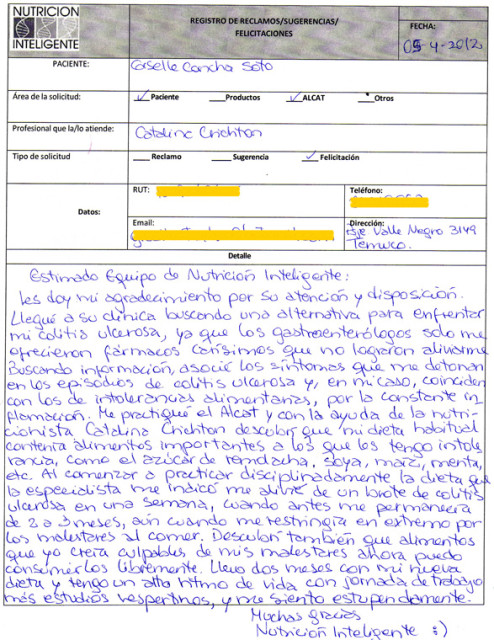 NUTRICION
INTELIGENTE
REGISTRO DE RECLAMOS/SUGERENCIAS/
FELICITACIONES
FECHA:
05-4-2012
PACIENTE: Giselle Concha Soto
Área de la solicitud: ✓ Paciente ___Productos ✓ ALCAT ___Otros
Profesional que la/lo atiende: Catalina Crichton
Tipo de solicitud ___Reclamo ___Sugerencia ✓ Felicitación
Datos:
RUT:
Teléfono:
Email:
Dirección:
Pje Valle Negro 3149
Temuco.
Detalle
Estimado Equipo de Nutrición Inteligente:
les doy mi agradecimiento por su atención y disposición.
Llegué a su clínica buscando una alternativa para enfrentar
mi colitis ulcerosa, ya que los gastroenterólogos solo me
ofrecieron fármacos carísimos que no lograron aliviarme
Buscando información, asocié los síntomas que me detonan
en los episodios de colitis ulcerosa y, en mi caso, coinciden
con los de intolerancias alimentarias, por la constante in
flamación. Me practiqué el Alcat y con la ayuda de la nutri-
cionista Catalina Crichton descubrí que mi dieta habitual
contenía alimentos importantes a los que les tengo intole
rancia, como el azúcar de remolacha, soya, maíz, menta,
etc. Al comenzar a practicar disciplinadamente la dieta que
la especialista me indicó me alivié de un brote de colitis
ulcerosa en una semana, cuando antes me permanecía
de 2 a 3 meses, aún cuando me restringía en extremo por
los malestares al comer. Descubrí también que alimentos
que yo creía culpables de mis malestares ahora puedo
consumirlos libremente. Llevo dos meses con mi nueva
dieta y tengo un alto ritmo de vida con jornada de trabajo
más estudios vespertinos, y me siento estupendamente.
Muchas gracias
Nutrición Inteligente :)